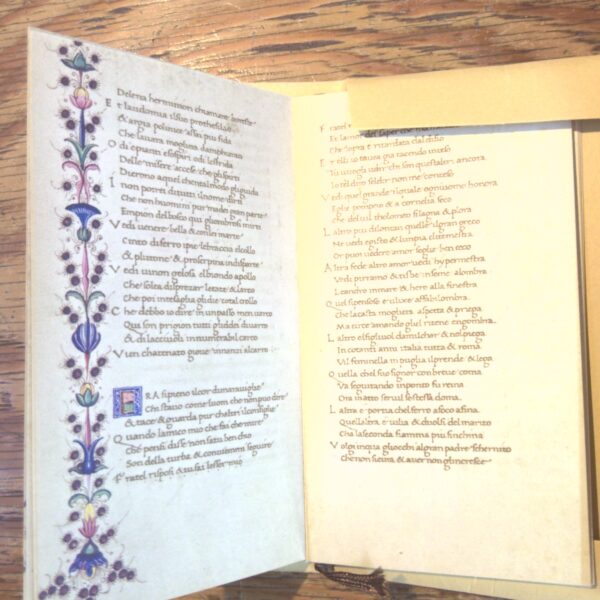 Delena hermion chiamare
Et laudomia el suo prothesilao
& argia polinice assai piu fida
Che lauara moglie damphiarao
Odi epianti esospiri odi lestrida
Delle misere accese che gli spirti
Dierono aquel che in tal modo gliguida
Non poria dirti
Che non huomini pur ma dei gran parte
Empion delbosco gliombrosi mirti
Vedi uenere bella & con lei marte
Cinto diferro ipie lebraccia elcollo
& plutone & proserpina indisparte
Vedi iunon gelosa elbiondo apollo
Che solea disprezar letate & larco
Che poi intesaglia gli die tal crollo
Che debbo io dire in un passo men uarco
Tutti son prigion gli dei
& di lacciuoli innumerabil carco
Vien chatenato gioue innanzi alcarro
ERA sipieno ilcor dimarauiglie
Chi stauo come huom che non puo dire
& tace & guarda pur chaltri ilconsiglie
Quando lamico mio che fai che mire
Che pensi disse non sai tu ben chio
Son della turba & conuiemmi seguire
Fratel risposi & tu sai lesser mio
Et lamor del saper
Che lopra e ritardata dal disio
Et elli io tauea gia tacendo inteso
Tu uuogli udir chi son questaltri ancora
Io tel diro seldir non me conteso
Vedi quel grande ilquale ogniuomo honora
Eglie pompeio & a cornelia seco
Che del uil tholomeo silagna & plora
Laltro piu dilontan quelle ilgran greco
Ne uede egisto & lempia clitemestra
Or puoi uedere amor seglie ben ceco
Altra fede altro amor uedi hypermestra
Vedi piramo & tisbe insieme alombra
Leandro in mare & hero alla finestra
Quel si pensoso e ulixe affabil ombra
Che lacasta mogliera aspetta & priega
Ma circe amando gliel ritene engombra
Laltro e ilfigliuol damilchar & nol piega
In cotanti anni italia tutta & roma
Vil feminella in puglia ilprende & lega
Quella chel suo signor con breue coma
Va seguitando in ponto fu reina
Ora in atto seruil se stessa doma
Laltra e portia chelferro afoco afina
Quellaltra e iulia & duolsi del marito
Cha laseconda fiamma piu sinchina
Volgi inqua gliocchi algran padre schernito
Che non si muta & dauer non glincresce